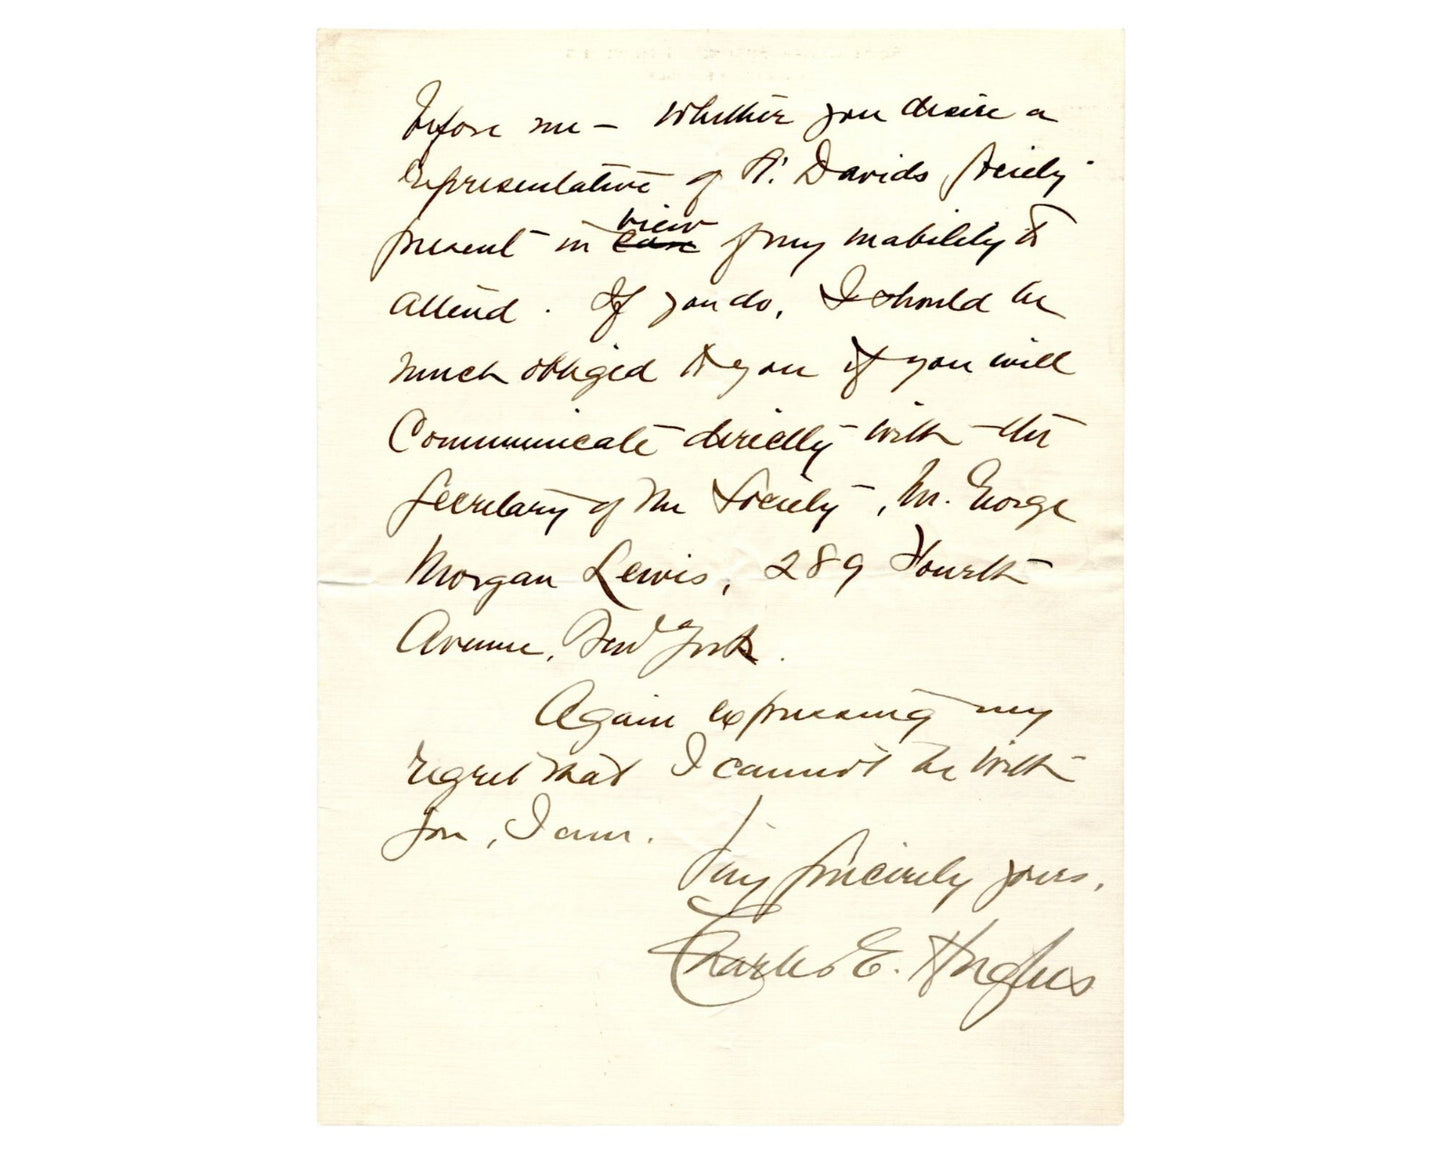 before me – whether you desire a
representative of St. Davids Society
present in case view of my inability to
attend. If you do, I should be
much obliged to you if you will
Communicate directly with the
Secretary of the Society, Mr. George
Morgan Lewis, 289 Fourth
Avenue, New York.
Again expressing my
regret that I cannot be with
you, I am.
Very sincerely yours,
Charles E. Hughes